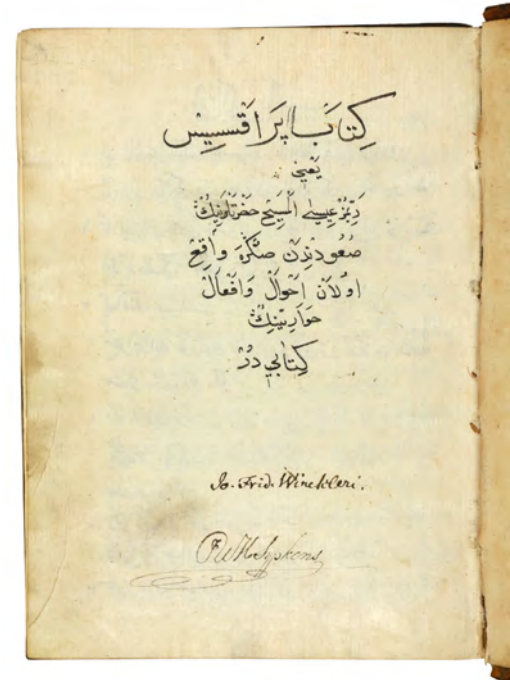 كِتَابْ اپْرَاقْسِيسْ
يَعْنِى
رَبِّمُزْ عِيسَى الْمَسِيحْ حَضْرَتْلَرِينِكْ
صُعُودِنْدِنْ صُكْرَه وَاقِعْ
اوُلَانْ اَحْوَالْ وَاَفْعَالْ
حَوَارِيِّينِكْ
كِتَابِي دُرْ
Jo. Frid. Winckleri.